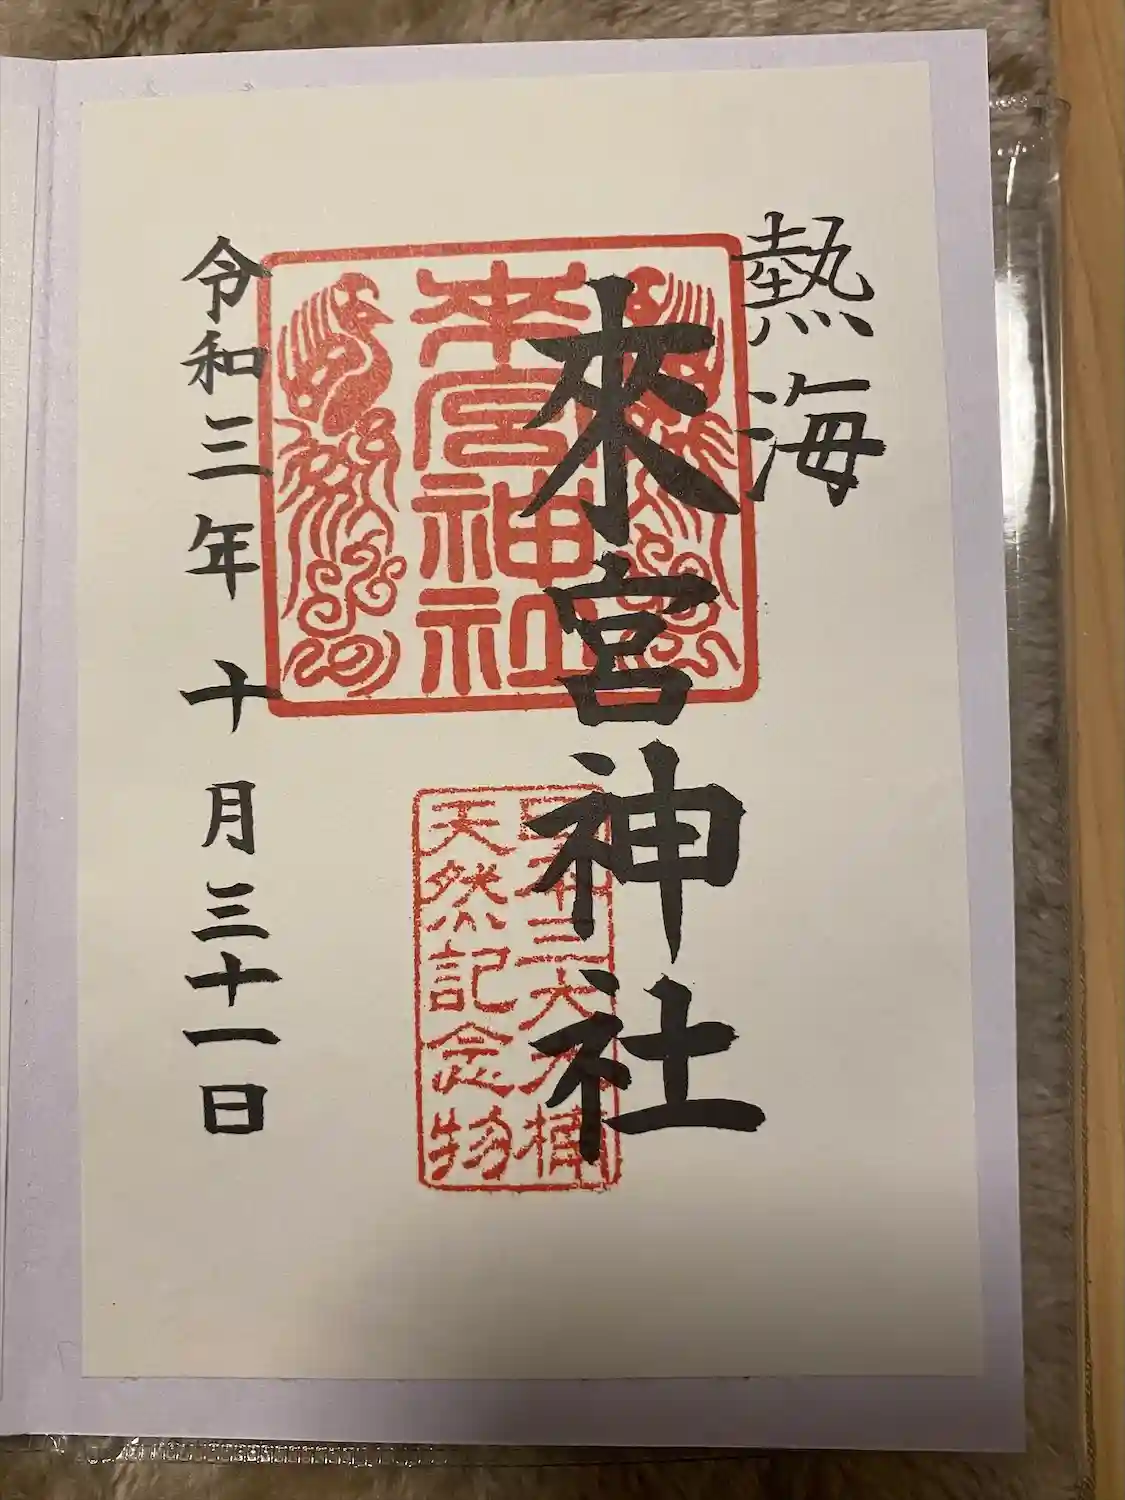 熱海
來宮神社
來宮神社
日本三大大楠
天然記念物
令和三年 十月三十一日